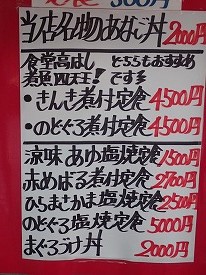 当店名物あなご丼 2000円
食堂高はし どちらもおすすめ
煮魚四天王! です
・きんき煮付定食 4500円
・のどぐろ煮付定食 4500円
涼味 あゆ塩焼定食 1500円
赤めばる煮付定食 2700円
ひらまさかま塩焼定食 2500円
のどぐろ塩焼定食 5000円
まぐろづけ丼 2000円